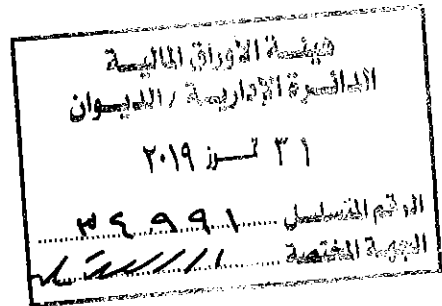 هيئة الأوراق المالية
الدائرة الإدارية / الديوان
٣١ تموز ٢٠١٩
الرقم المتسلسل ٣٤٩٩١
الجهة المختصة